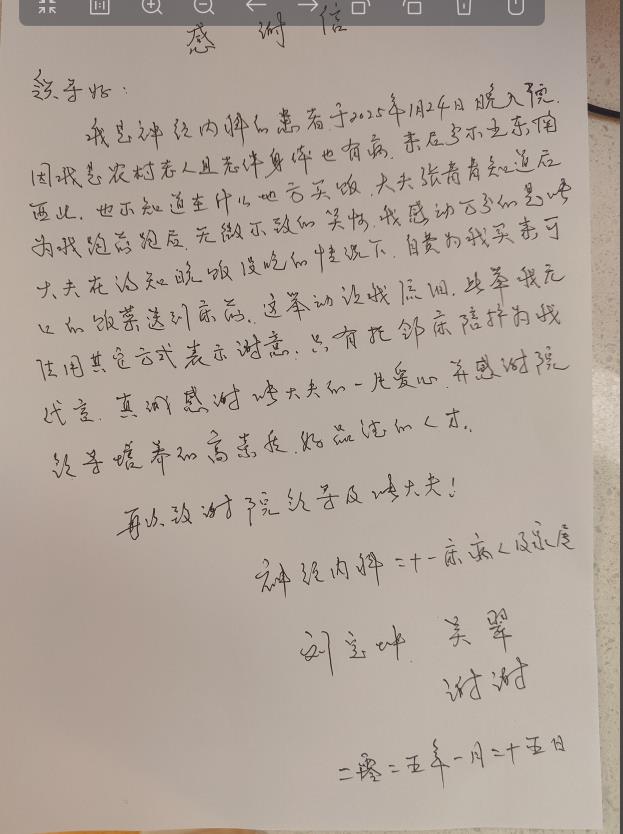 感谢信
领导好：
我是神经内科的患者，于2025年1月24日晚入院.
因我是农村老人且老伴身体也有病.来后分不土东南
西北.也不知道在什么地方买饭.大夫张青青知道后
为我跑前跑后.无微不致的关怀.我感动万分的是
大夫在得知晚饭没吃的情况下.自费为我买来可
口的饭菜送到床前.这举动让我流泪.此举我无
法用其它方式表示谢意.只有托邻床陪护为我
代言.真诚感谢 大夫的一片爱心.并感谢院
领导培养的高素质.好品德的人才.
再次致谢院领导及 大夫！
神经内科二十一床病人及家属
刘 坤 美翠
谢谢
二零二五年一月二十五日